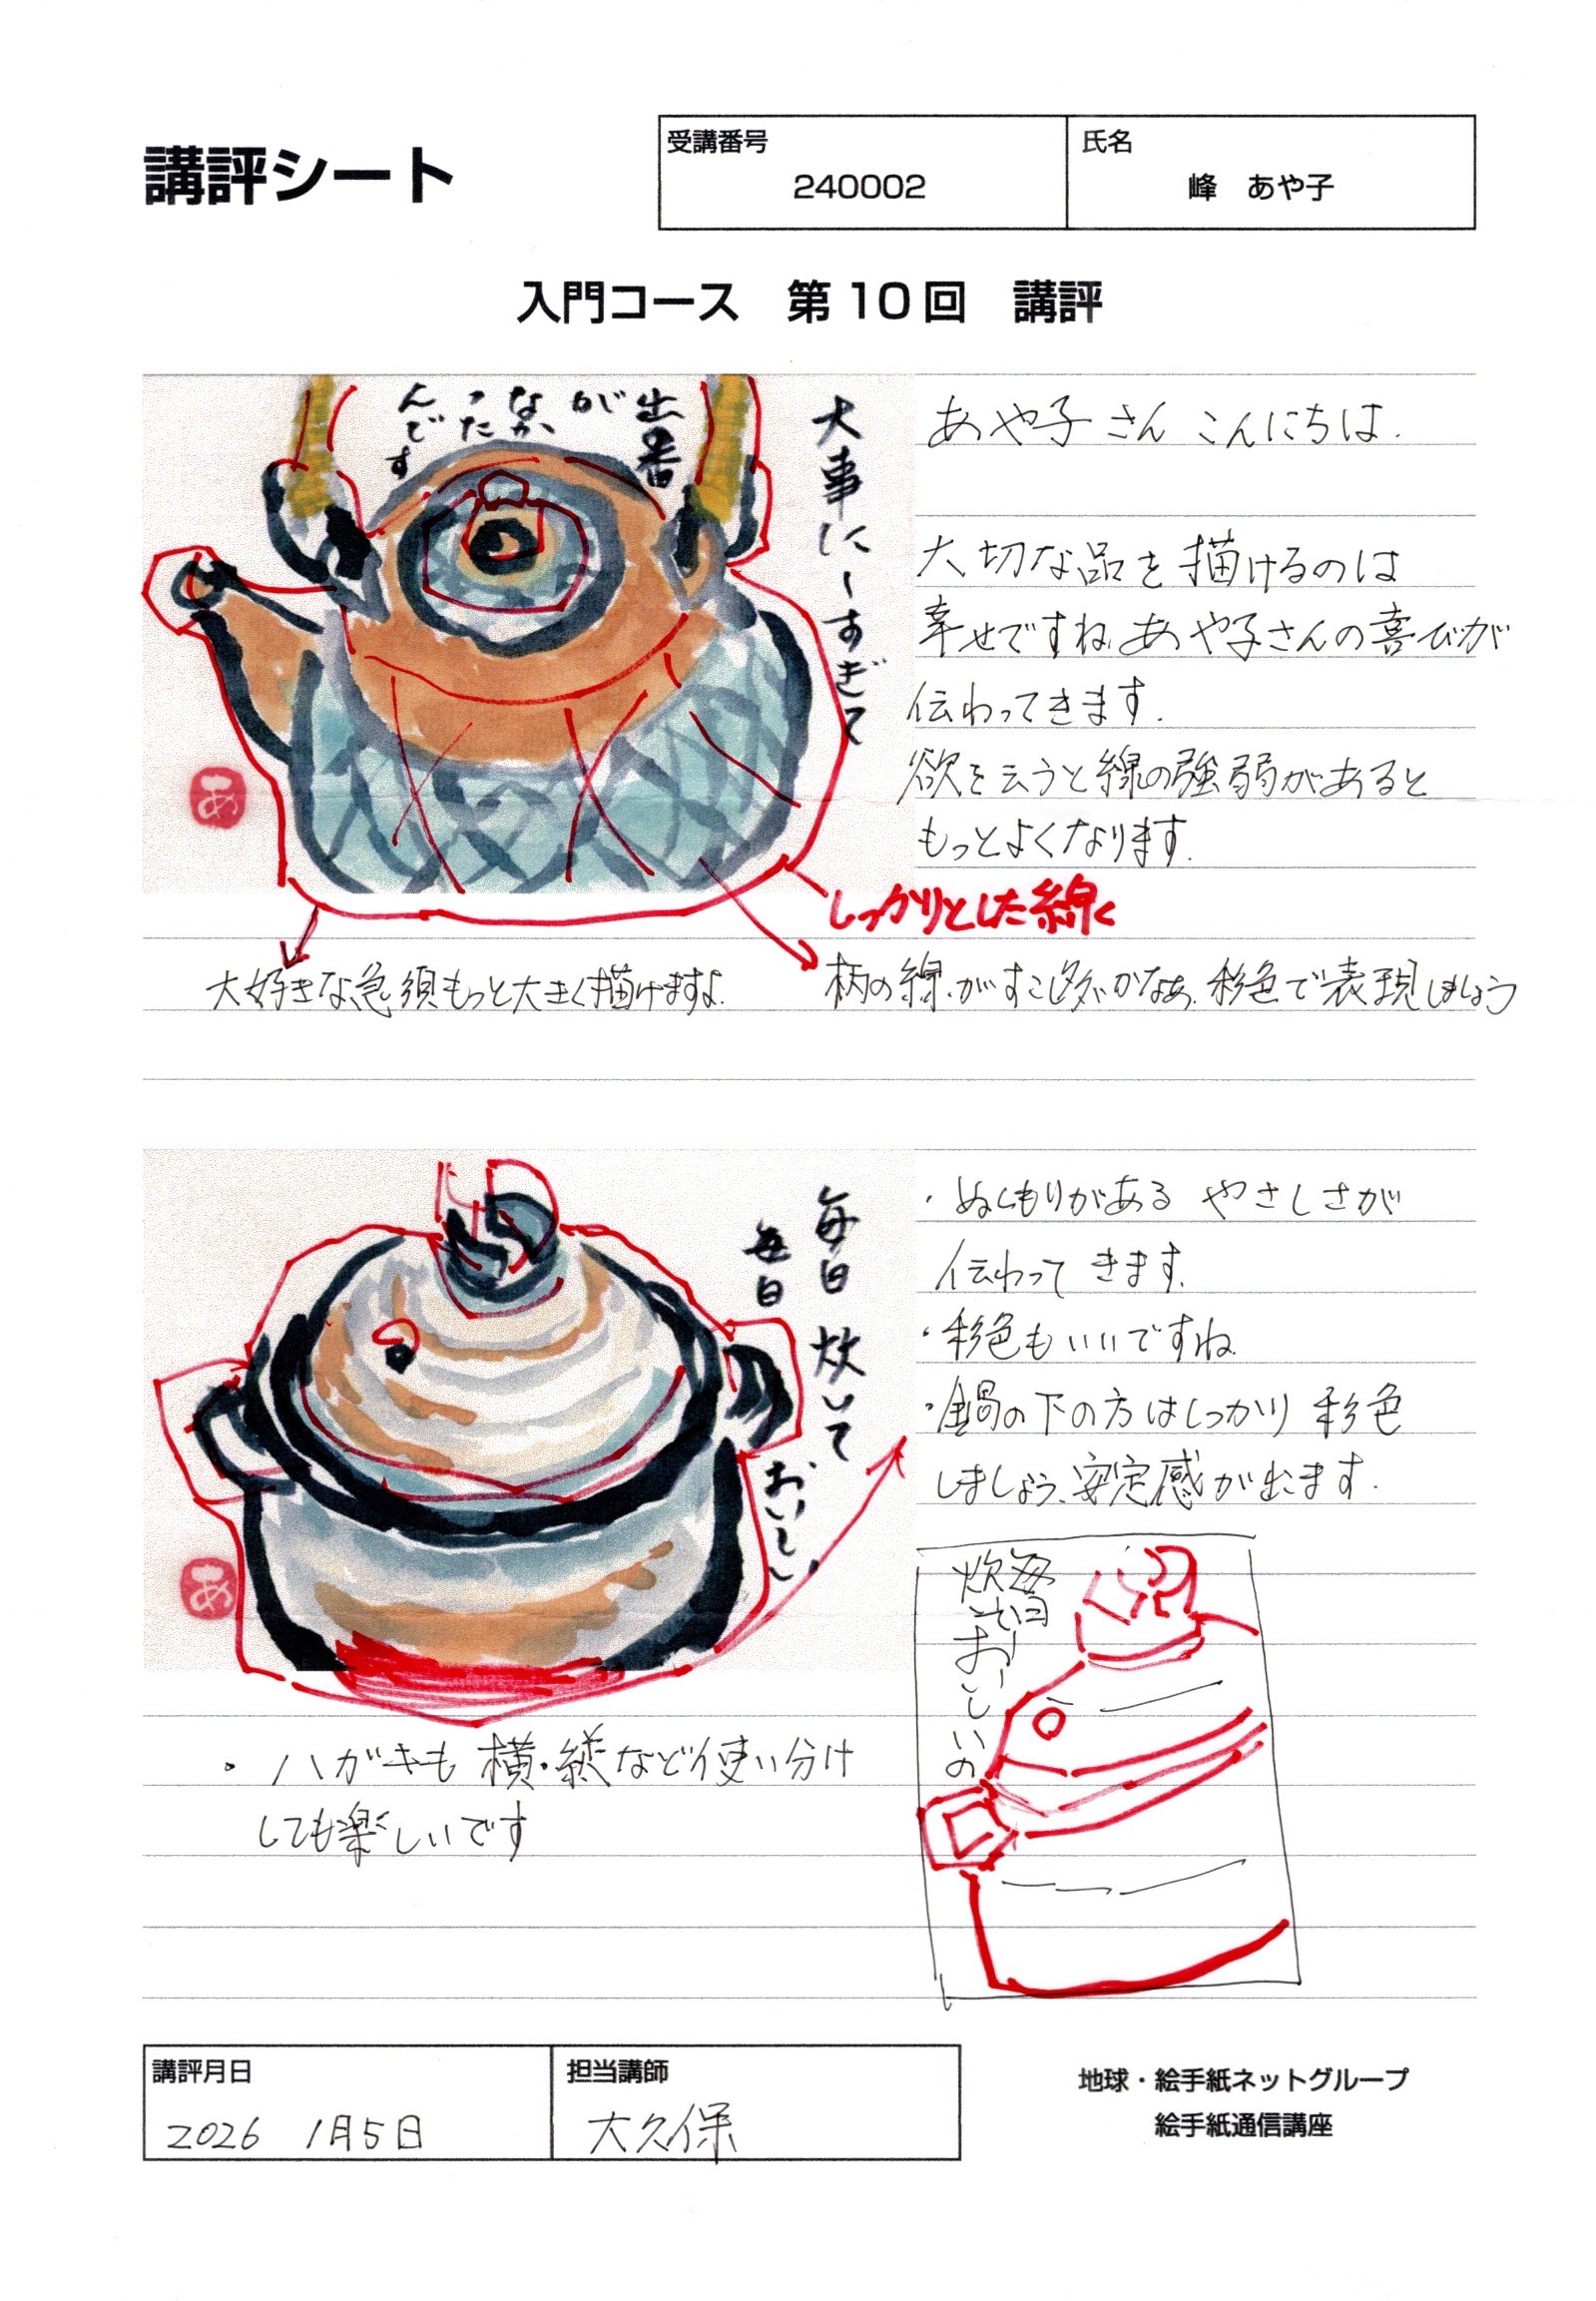 講評シート
受講番号
240002
氏名
峰　あや子
入門コース　第10回　講評
大事にしすぎて
出番
が
なか
った
んで
す
あ
あや子さん こんにちは.
大切な品を描けるのは
幸せですね。あや子さんの喜びが
伝わってきます.
欲を云うと線の強弱があると
もっとよくなります.
しっかりとした線く
大好きな急須もっと大きく描けますよ.
柄の線.がすこし多いかなぁ.彩色で表現しましょう
毎日 炊いて
毎日
おいしい
あ
・ぬくもりがある やさしさが
伝わって きます.
・彩色もいいですね
・鍋の下の方はしっかり 彩色
しましょう、安定感が出ます.
毎日
炊いて
おいしいの
・ハガキも 横・縦など使い分け
しても楽しいです
講評月日
2026 1月5日
担当講師
大久保
地球・絵手紙ネットグループ
絵手紙通信講座